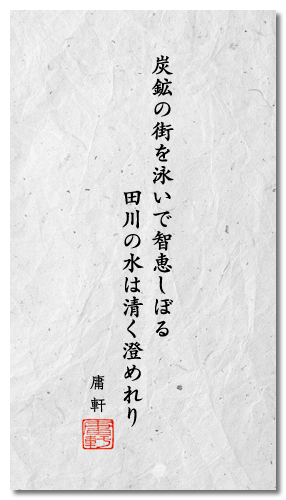 炭鉱の街を泳いで智恵しぼる
田川の水は清く澄めれり
庸軒
庸軒